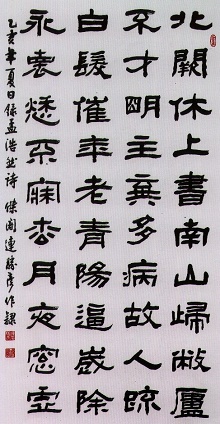 北闕休上書南山歸敝廬
不才朙主棄多病故人疎
白髮催年老青陽逼歲除
永懷愁不寐枩月夜窓虛
乙亥年夏日錄孟浩然詩 傑閣連勝彥作隸